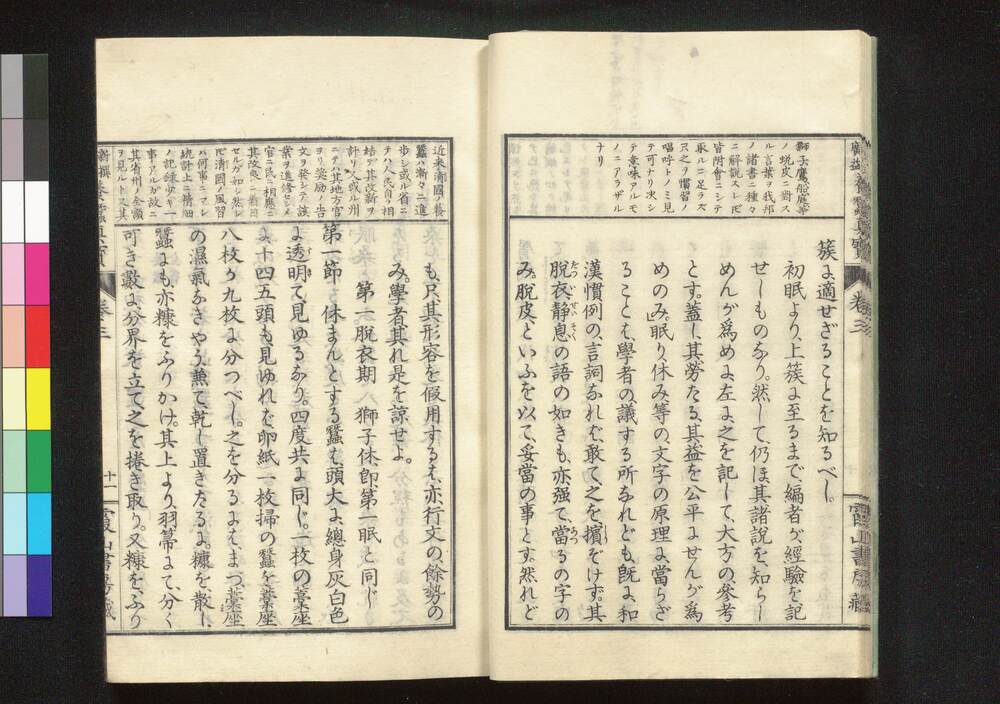 獅子鷹船庭等
ノ蛻皮ニ對ス
ル言葉ヲ我邦
ノ諸書ニ種々
ニ解説スレ𪜈
皆附會ニシテ
取ルニ足ラズ
只之ヲ慣習ノ
唱呼トノミ見
テ可ナリ决シ
テ意味アルモ
ノニアラザル
ナリ
簇よ適せざることを知るべし。
初眠より、上簇よ至るまで、編者が、經驗を記
せしものなり。然して、仍ほ其諸説を、知らし
めんが爲めよ、左よ、之を記して、大方の、參考
とす。蓋し其勞たる、其益を公平よせんが爲
めのみ、眠り、休み等の、文字の原理よ、當らざ
ることは、學者の、議する所なれども、既よ、和
漢慣例の、言詞なれば、敢て、之を擯ぞけず。其
脱衣、静息の語の如きも、亦强て、當るの字の
み。脱皮、といふを以て、妥當の事とす。然れど
卷三
霞山書房藏
近来清國ノ養
蠶ハ漸々ニ進
歩シ或ル省ニ
テハ人民自ラ相
結デ其改新ヲ
計リ又或ル州
ニテハ其地方官
ヨリ奬励ノ告
文ヲ發シテ該
業ヲ進修セシメ
官ニ民ニ相應ニ
其改良ニ着目
セルガ如シ然レ
𪜈清國ノ風習
ハ何事ニマレ
統計上ニ精細
ノ記録少キ一
事アルガ故ニ
其省州ノ全額
ヲ見ルトハ其
も、只其形容を假用するは、亦行文の、餘勢の
み。學者其れ是を諒せよ。
第一脱衣期 八獅子休、卽、第一眠と同じ
第一節 休まんとする蠶は、頭大よ、總身灰白色
よ、透明て、見ゆるなり。四度共よ同じ。一枚の藁座
よ、十四五頭も、見ゆれば、卵紙一枚掃の蠶を、藁座
八枚か九枚よ分つべし。之を分るよは、まづ、藁座
の濕氣なきやう、兼て、乾し置きたるよ。糠を、散し、
蠶よも、亦糠をふりかけ。其上より、羽箒よて、分く
可き數よ分界を立て、之を捲き取り。又糠を、ふり
卷三
十一
霞山書房藏